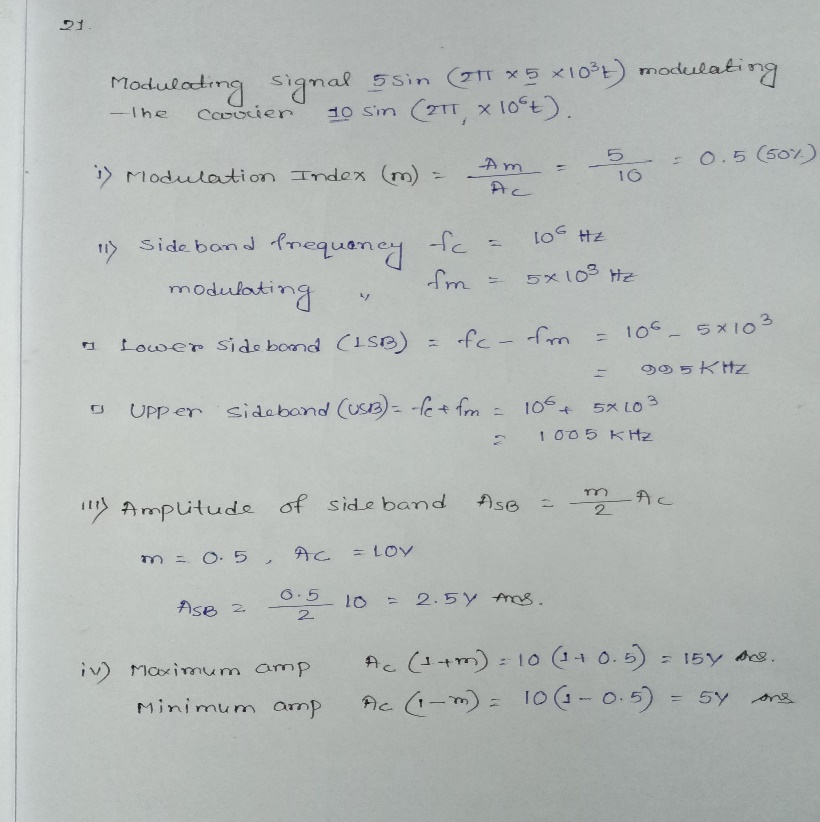 21.
Modulating signal 5 sin (2π × 5 × 10³t) modulating
the carrier 10 sin (2π × 10⁶t).
i) Modulation Index (m) = Am/Ac = 5/10 = 0.5 (50%)
ii) Sideband frequency fc = 10⁶ Hz
modulating ,, fm = 5×10³ Hz
Lower sideband (LSB) = fc - fm = 10⁶ - 5×10³
= 995 KHz
Upper sideband (USB) = fc + fm = 10⁶ + 5×10³
= 1005 KHz
iii) Amplitude of sideband ASB = m/2 Ac
m = 0.5, Ac = 10V
ASB = 0.5/2 10 = 2.5V Ans.
iv) Maximum amp Ac (1+m) = 10 (1+0.5) = 15V Ans.
Minimum amp Ac (1-m) = 10 (1-0.5) = 5V Ans